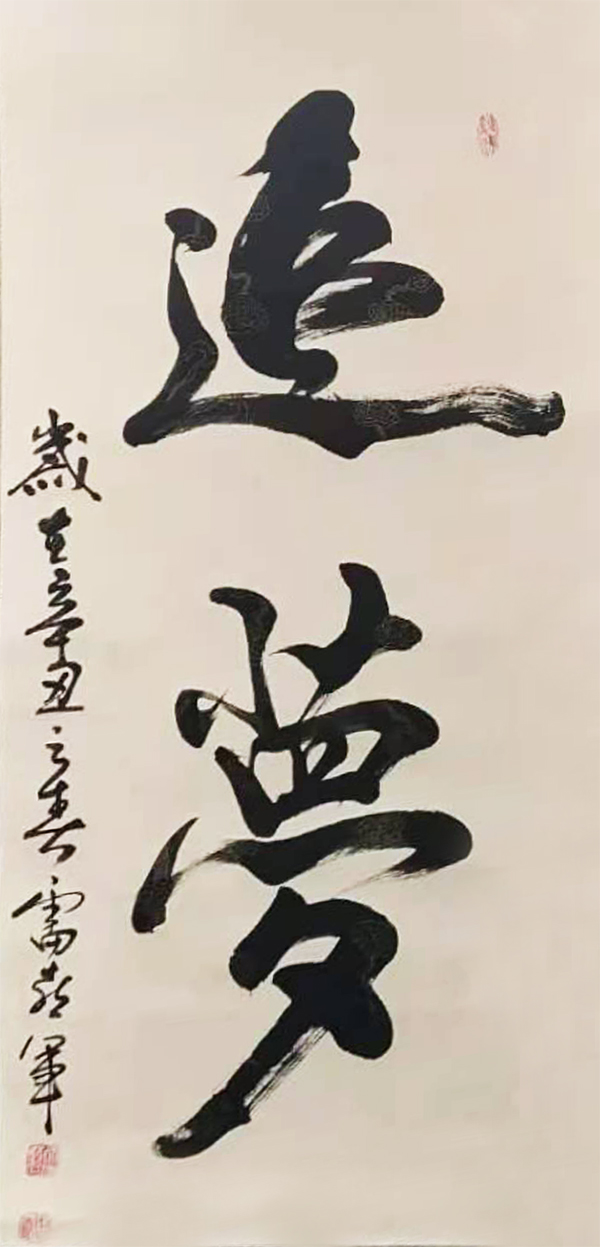 追夢
歲在辛丑之春雷軍